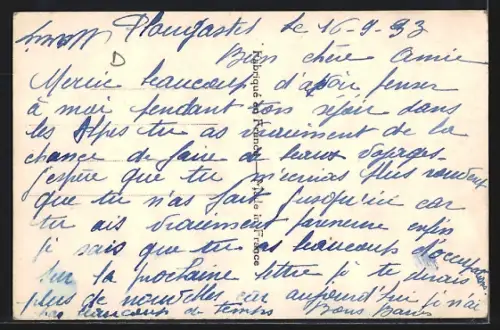 Plougastel le 16-9-33
Bien chère Amie
Mercie beaucoup d'avoir penser
à moi pendant ton séjour dans
les Alpes tu as vraiment de la
chance de faire de beaux voyages.
J'espère que tu m'écriras plus souvent
que tu n'as fait jusqu'ici car
tu ais vraiment paresseuse enfin
je sais que tu as beaucoup d'occupation
Sur la prochaine lettre je te dirais
plus de nouvelles car aujourd'hui je n'ai
pas beaucoup de temps Bons Baisers
Fabriqué en France - Made in France
D